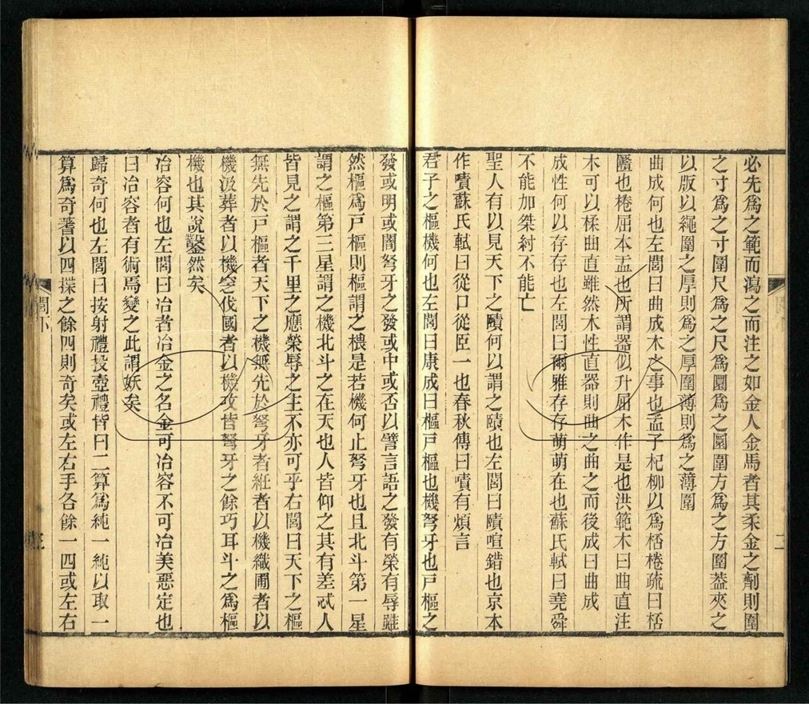 必先爲之範而瀉之而注之如金人金馬者其柔金之劑則圍
之寸爲之寸圍尺爲之尺爲圓爲之圓圍方爲之方圍蓋夾之
以版以繩圍之厚則爲之厚圍薄則爲之薄圍
曲成何也左閎曰曲成木之事也孟子杞柳以爲桮棬疏曰桮
也棬屈本盂也所謂器似升屈木作是也洪範木曰曲直注
木可以楺曲直雖然木性直器則曲之曲之而後成曰曲成
成性何以存存也左閎曰爾雅存存萌萌在也蘇氏軾曰堯舜
不能加桀紂不能亡
聖人有以見天下之賾何以謂之賾也左閎曰賾喧錯也京本
作嘖蘇氏軾曰從口從臣一也春秋傳曰嘖有煩言
君子之樞機何也左閎曰康成曰樞戶樞也機弩牙也戶樞之
發或明或闇弩牙之發或中或否以譬言語之發有榮有辱雖
然樞爲戶樞則樞謂之椳是若機何止弩牙也且北斗第一星
謂之樞第三星謂之機北斗之在天也人皆仰之其有差忒人
皆見之謂之千里之應榮辱之主不亦可乎右閎曰天下之樞
無先於戶樞者天下之機無先於弩牙者紝者以機織圃者以
機汲葬者以機窆伐國者以機攻皆弩牙之餘巧耳斗之爲樞
機也其說鑿然矣
冶容何也左閎曰冶者冶金之名金可冶容不可冶美惡定也
曰冶容者有術焉變之此謂妖矣
歸奇何也左閎曰按射禮投壺禮皆曰二算爲純一純以取一
算爲奇蓍以四揲之餘四則奇矣或左右手各餘一四或左右